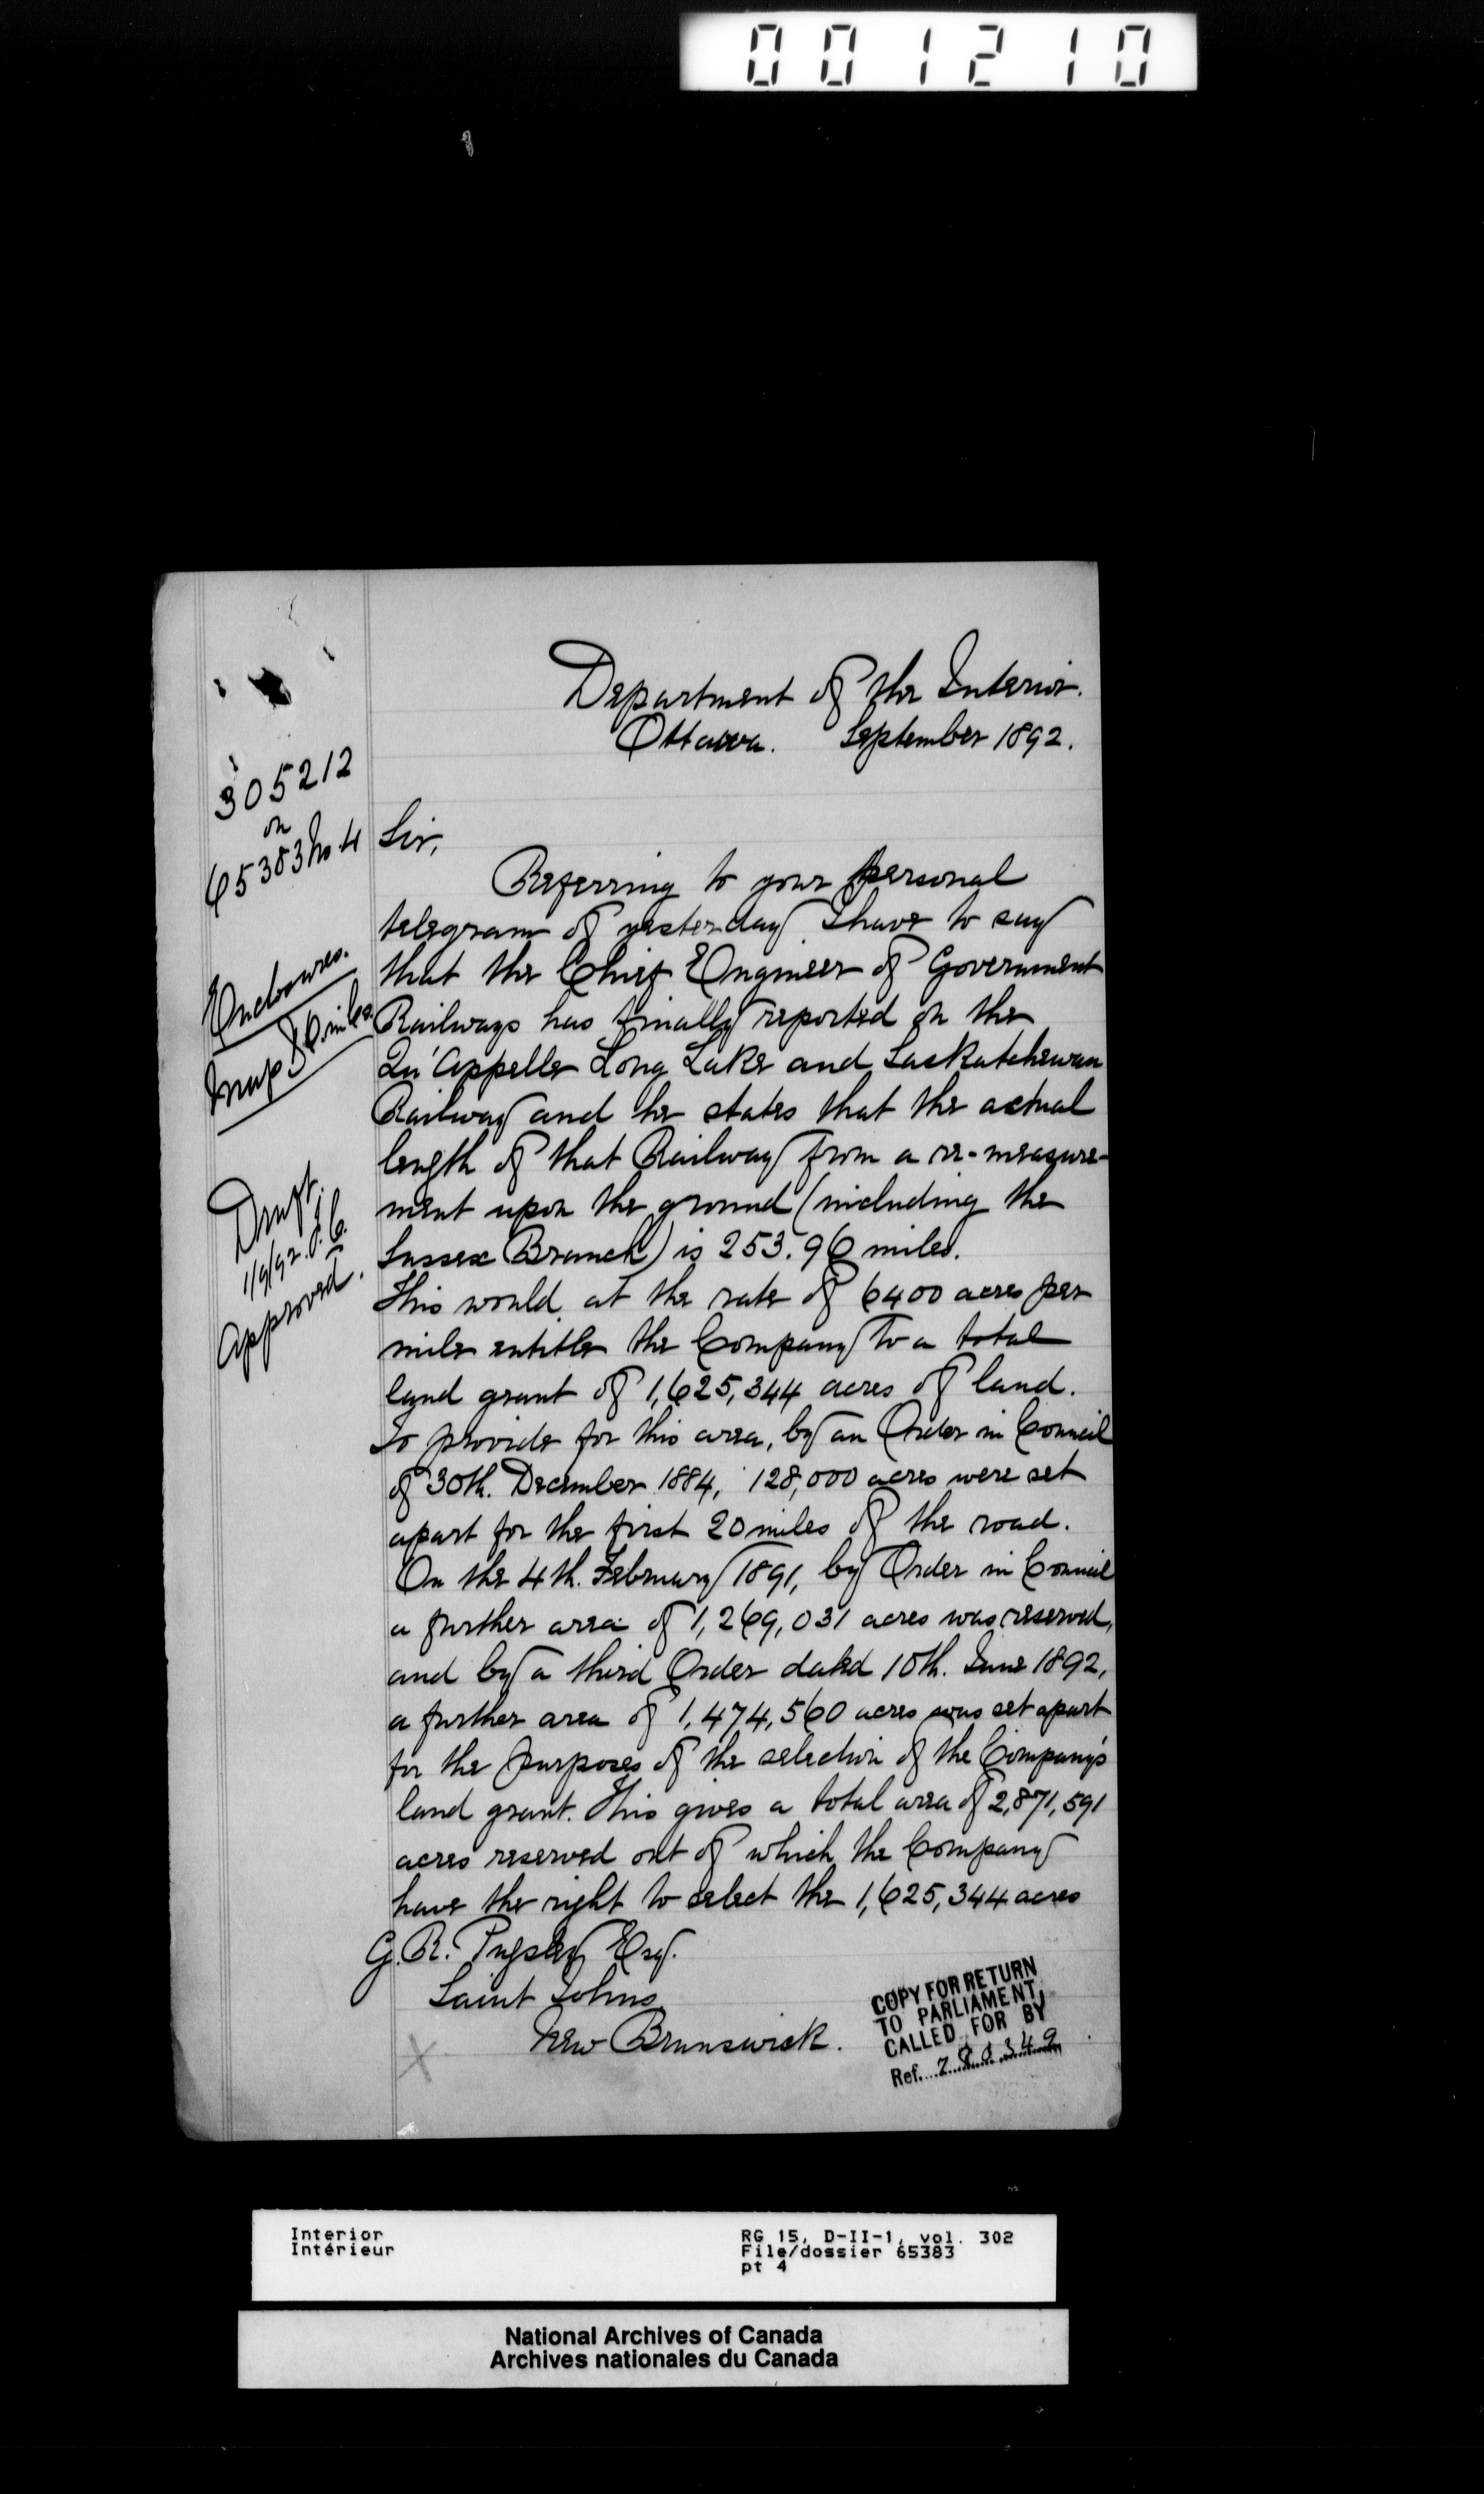 001210
Department of the Interior.
Ottawa. September 1892.
305212
on
65383 No. 4
Sir,
Referring to your personal
telegram of yesterday I have to say
that the Chief Engineer of Government
Railways has finally reported on the
Qu'Appelle Long Lake and Saskatchewan
Railway and he states that the actual
length of that Railway from a re-measure-
ment upon the ground (including the
Sussex Branch) is 253.96 miles.
This would at the rate of 6400 acres per
mile entitle the Company to a total
land grant of 1,625,344 acres of land.
To provide for this area, by an Order in Council
of 30th. December 1884, 128,000 acres were set
apart for the first 20 miles of the road.
On the 4th. February 1891, by Order in Council
a further area of 1,269,031 acres was reserved,
and by a third Order dated 10th. June 1892,
a further area of 1,474,560 acres was set apart
for the purposes of the selection of the Company's
land grant. This gives a total area of 2,871,591
acres reserved out of which the Company
have the right to select the 1,625,344 acres
Enclosures.
Map 6 miles
Draft.
1/9/92. J.C.
Approved.
G. R. Pugsley Esq.
Saint Johns
New Brunswick.
COPY FOR RETURN
TO PARLIAMENT,
CALLED FOR BY
Ref.
Interior
Intérieur
RG 15, D-II-1, vol. 302
File/dossier 65383
pt 4
National Archives of Canada
Archives nationales du Canada